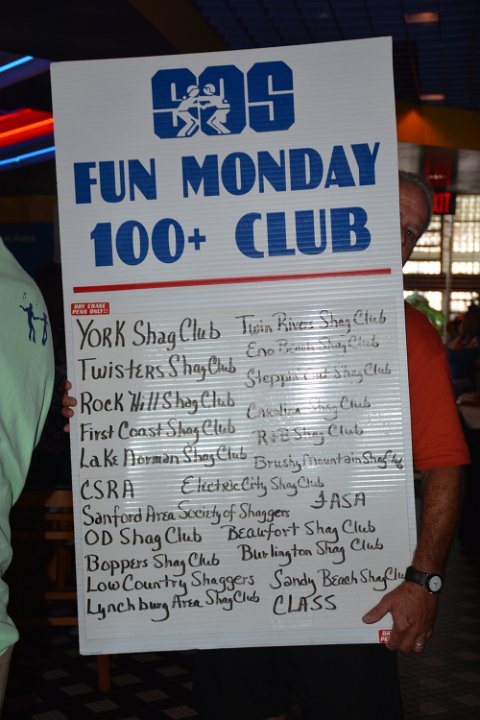 SOS
FUN MONDAY
100+ CLUB
DRY ERASE
PENS ONLY!!
YORK Shag Club
Twin Rivers Shag Club
Eno Beach Shag Club
Twisters Shag Club
Steppin Out Shag Club
Rock Hill Shag Club
Carolina Shag Club
First Coast Shag Club
R+B Shag Club
Lake Norman Shag Club
Brushy Mountain Shag Club
CSRA
Electric City Shag Club
Sanford Area Society of Shaggers
FASA
OD Shag Club
Beaufort Shag Club
Boppers Shag Club
Burlington Shag Club
Low Country Shaggers
Sandy Beach Shag Club
Lynchburg Area Shag Club
CLASS